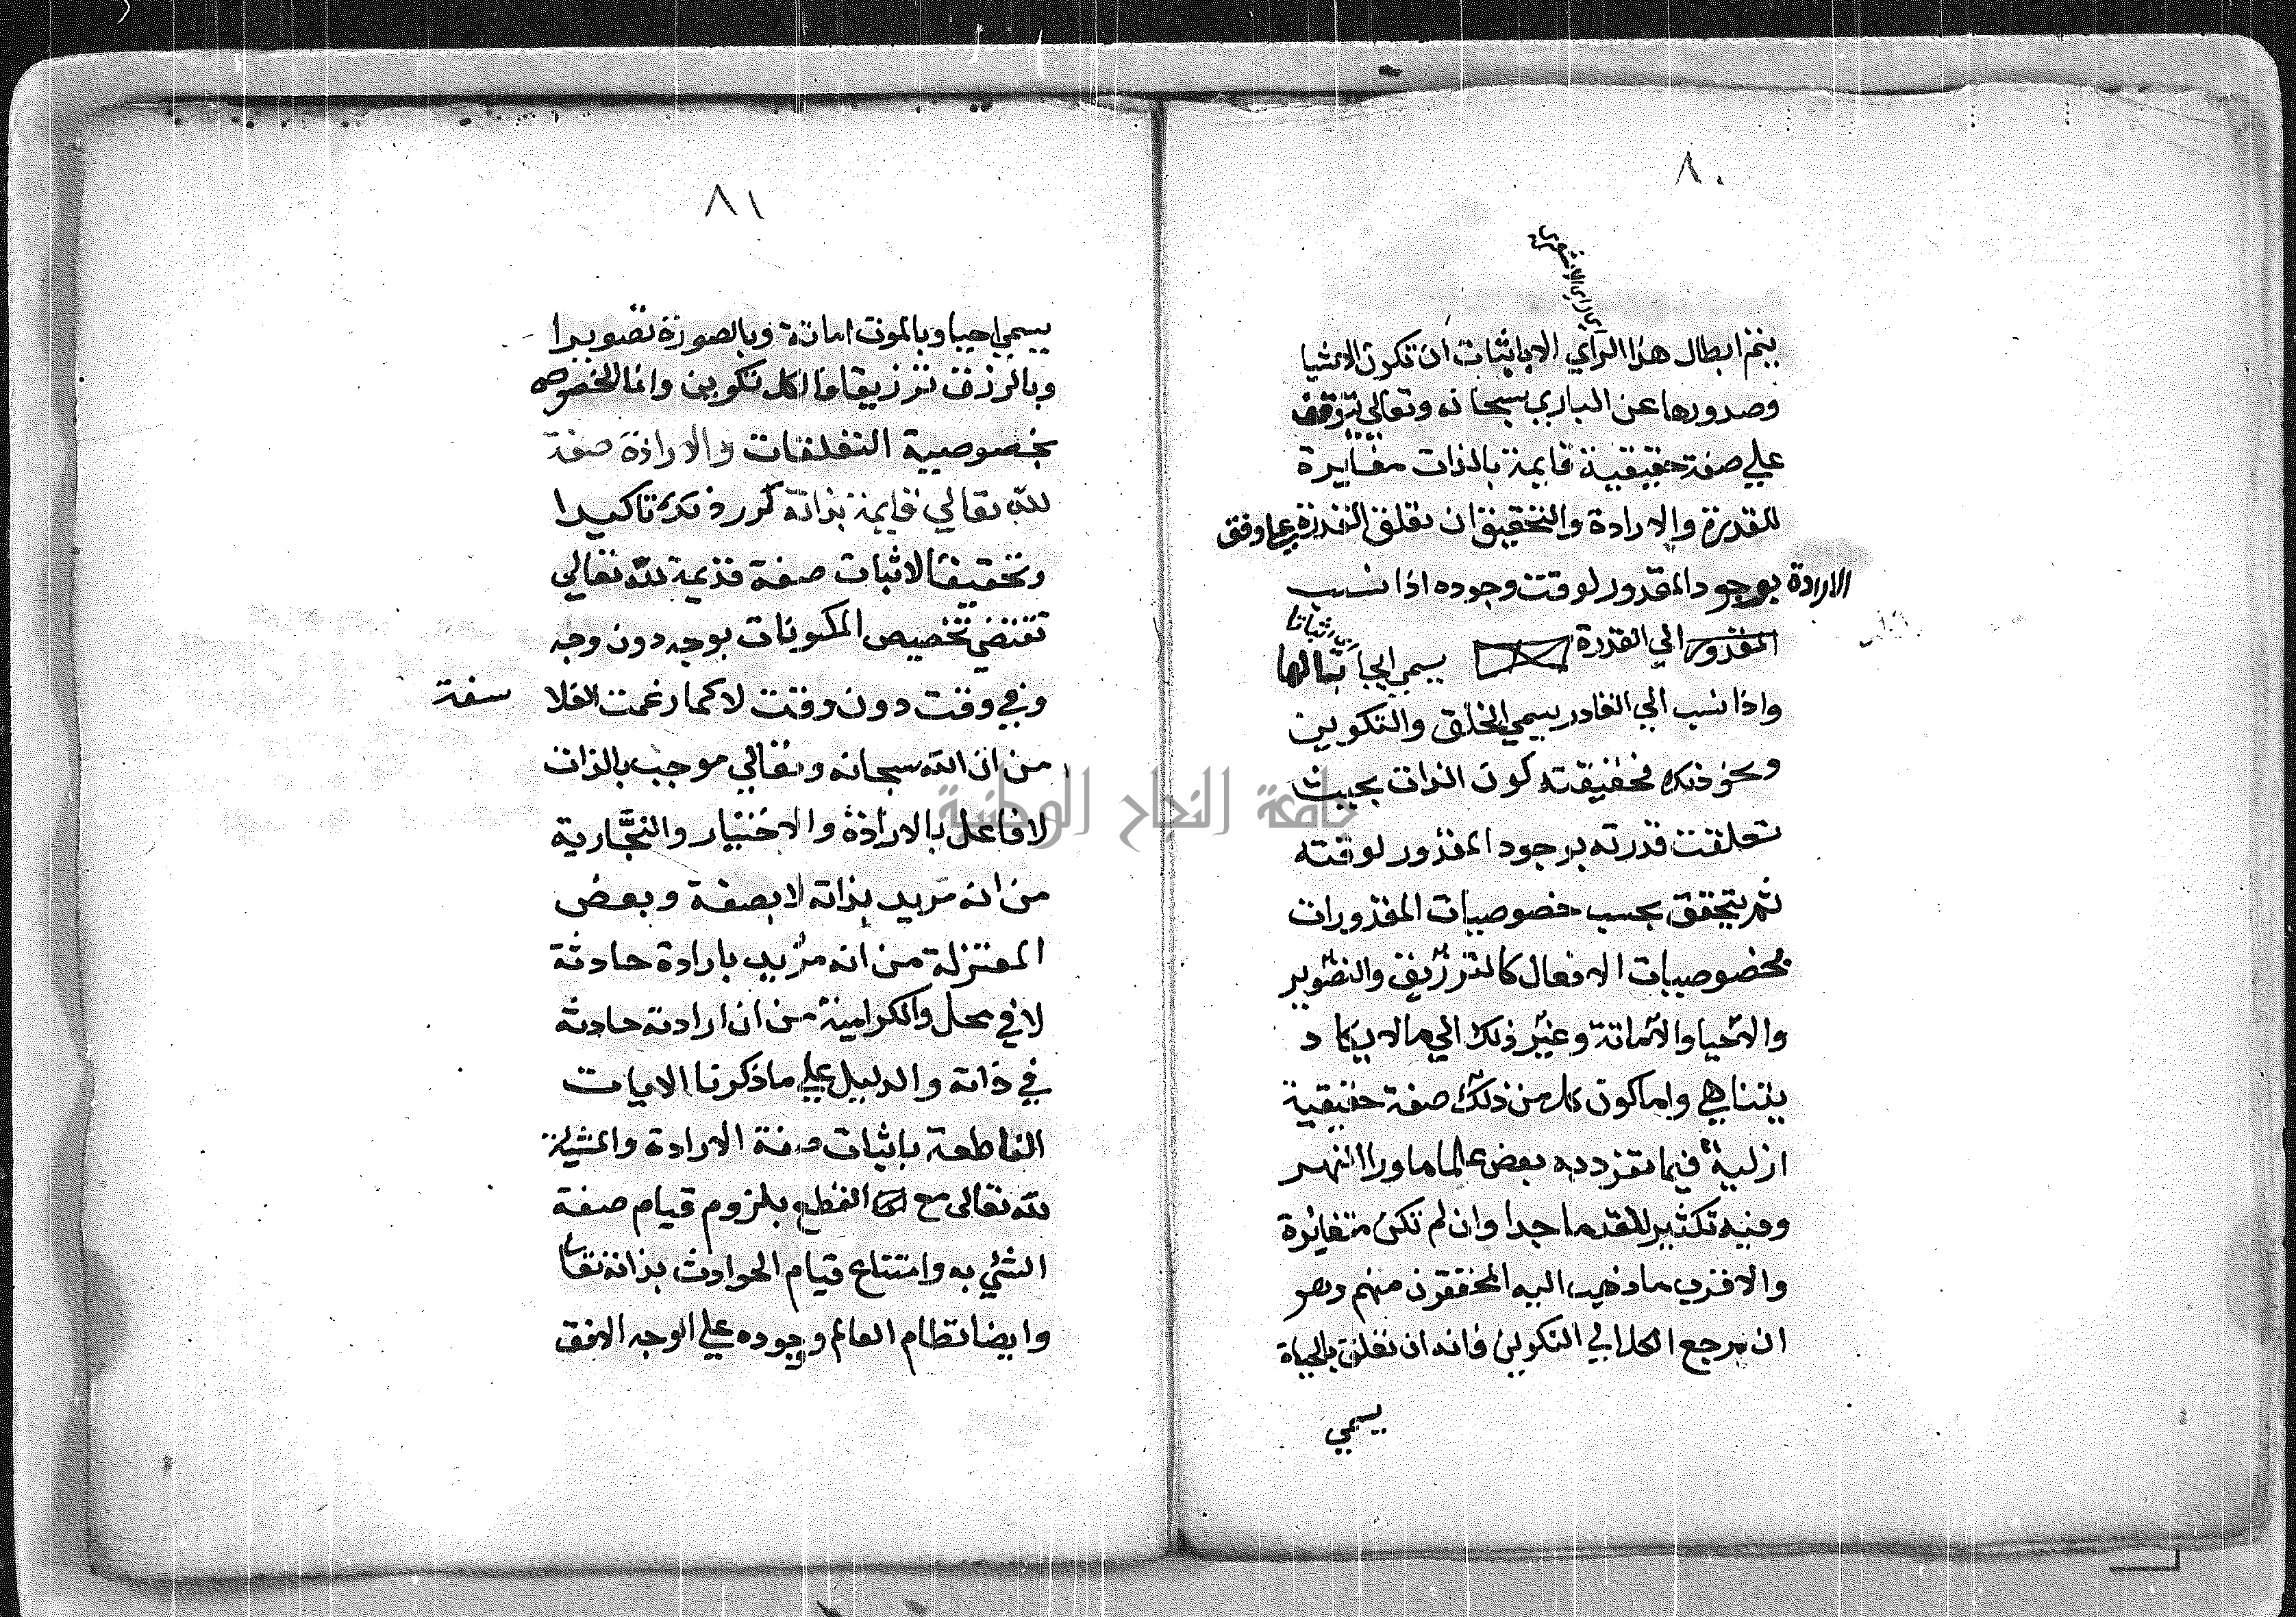 ٨٠
اي راي الاشعري
يتم ابطال هذا الراي الا باثبات ان تكون الاشيا
وصدورها عن الباري سبحانه وتعالي يتوقف
علي صفة حقيقية قايمة بالذات مغايرة
للقدرة والارادة والتحقيق ان تعلق القدرة علي وفق
الارادة بوجود المقدور لوقت وجوده اذا نسب
المقدور الي القدرة يسمي ايجابا لها
اي اثباتا
واذا نسب الي القادر يسمي الخلق والتكوين
ونحو ذلك فحقيقته كون الذات بحيث
تعلقت قدرته بوجود المقدور لوقته
ثم يتحقق بحسب خصوصيات المقدورات
خصوصيات الافعال كالترزيق والتصوير
والاحيا والاماتة وغير ذلك الي ما لا يكاد
يتناهي واما كون كل من ذلك صفة حقيقية
ازلية فيما تفرد به بعض علما ما ورا النهر
وفيه تكثير للقدما جدا وان لم تكن متغايرة
والاقرب ما ذهب اليه المحققون منهم وهو
ان مرجع الكل الي التكوين فانه ان تعلق بالحياة
يسمي
٨١
يسمي احيا وبالموت اماتة وبالصورة تصويرا
وبالرزق ترزيقا فالكل تكوين وانما الخصوص
بخصوصية التعلقات والارادة صفة
لله تعالي قايمة بذاته كرر ذلك تاكيدا
وتحقيقا لاثبات صفة قديمة لله تعالي
تقتضي تخصيص المكونات بوجه دون وجه
وفي وقت دون وقت لا كما زعمت الفلا سفة
من ان الله سبحانه وتعالي موجب بالذات
لا فاعل بالارادة والاختيار والنجَّارية
من انه مريد بذاته لا بصفة وبعض
المعتزلة من انه مريد بارادة حادثة
لا في محل والكرامية من ان ارادته حادثة
في ذاته والدليل علي ما ذكرنا الايات
القاطعة باثبات صفة الارادة والمشيئة
لله تعالى مع القطع بلزوم قيام صفة
الشئ به وامتناع قيام الحوادث بذاته تعا
وايضا نظام العالم ووجوده علي الوجه الاوفق
جامعة النجاح الوطنية